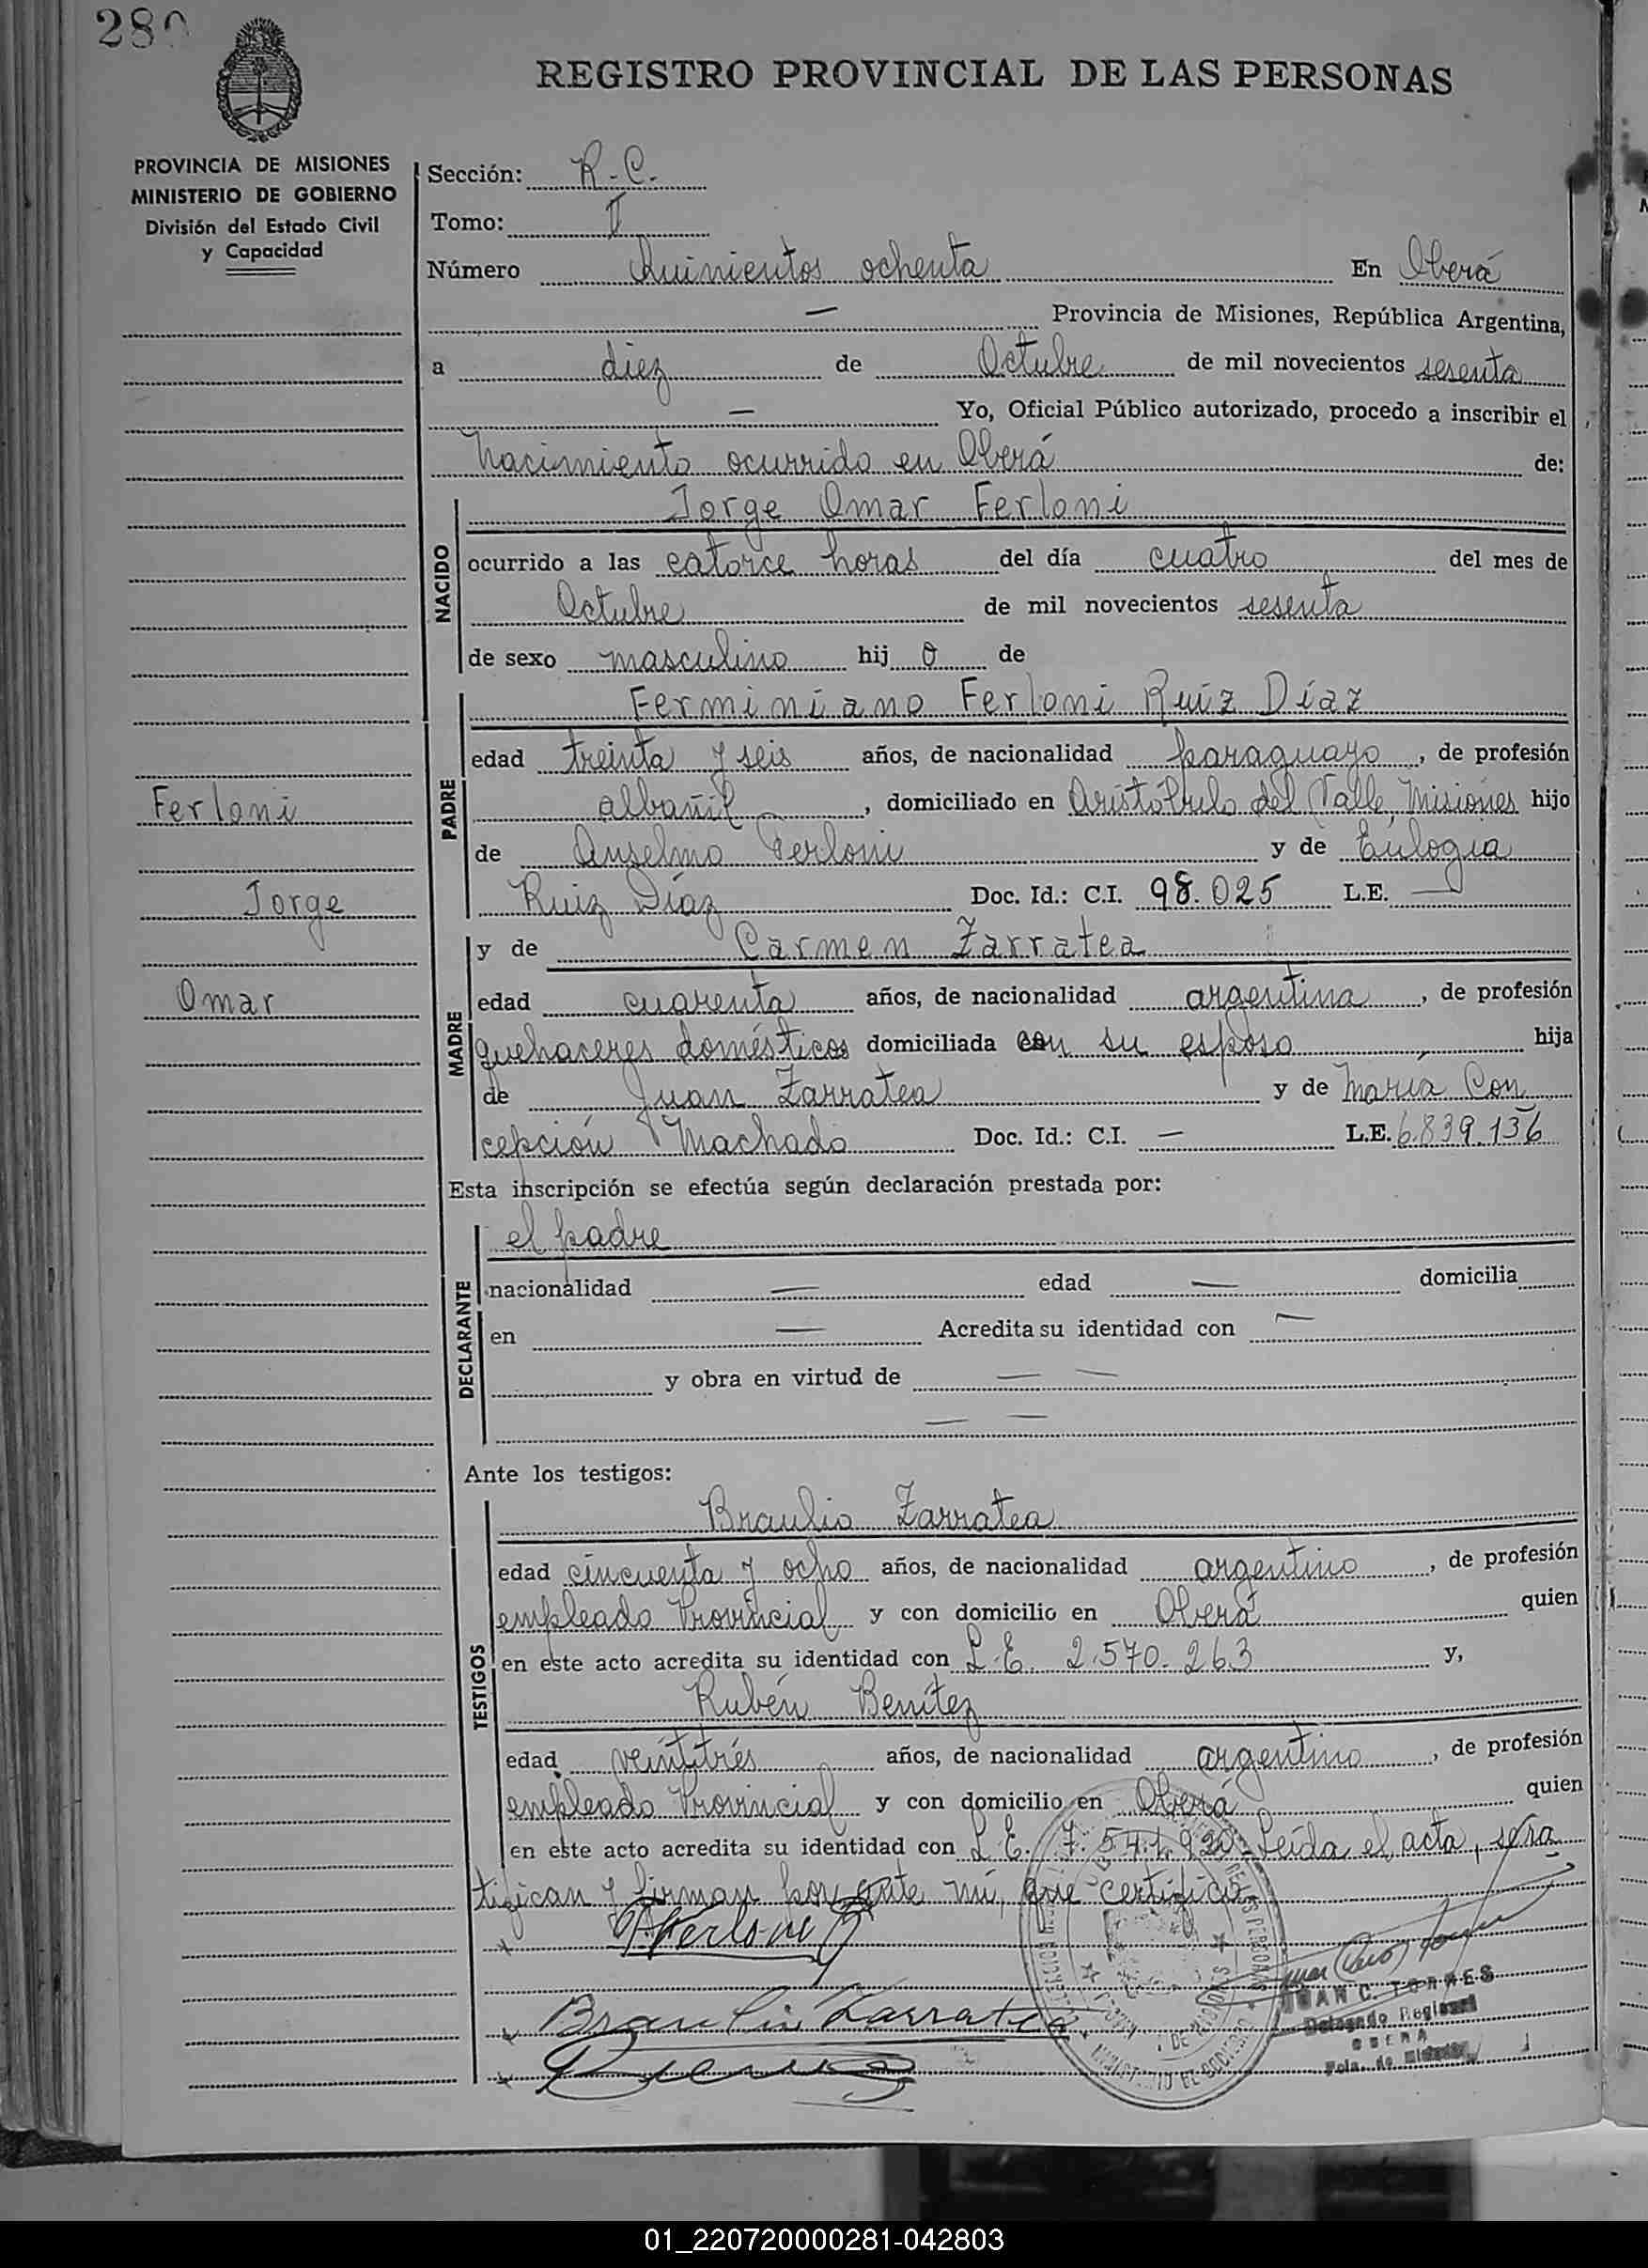 280
REGISTRO PROVINCIAL DE LAS PERSONAS
PROVINCIA DE MISIONES
MINISTERIO DE GOBIERNO
División del Estado Civil
y Capacidad
Sección: R.C.
Tomo: II
Número Quinientos ochenta En Oberá
— Provincia de Misiones, República Argentina,
a diez de Octubre de mil novecientos sesenta
— Yo, Oficial Público autorizado, procedo a inscribir el
Nacimiento ocurrido en Oberá de:
NACIDO
Jorge Omar Ferloni
ocurrido a las catorce horas del día cuatro del mes de
Octubre de mil novecientos sesenta
de sexo masculino hij o de
PADRE
Ferminiano Ferloni Ruíz Díaz
edad treinta y seis años, de nacionalidad paraguayo, de profesión
albañil, domiciliado en Aristóbulo del Valle, Misiones hijo
de Anselmo Ferloni y de Eulogia
Ruiz Díaz Doc. Id.: C.I. 98.025 L.E. —
Ferloni
Jorge
Omar
MADRE
y de Carmen Zarratea
edad cuarenta años, de nacionalidad argentina, de profesión
quehaceres domésticos domiciliada con su esposo hija
de Juan Zarratea y de María Con
cepción Machado Doc. Id.: C.I. — L.E. 6.839.136
Esta inscripción se efectúa según declaración prestada por:
DECLARANTE
el padre
nacionalidad — edad — domicilia
en — Acredita su identidad con —
y obra en virtud de — —
— —
Ante los testigos:
TESTIGOS
Braulio Zarratea
edad cincuenta y ocho años, de nacionalidad argentino, de profesión
empleado Provincial y con domicilio en Oberá quien
en este acto acredita su identidad con L.E. 2.570.263 y,
Rubén Benítez
edad veintitrés años, de nacionalidad argentino, de profesión
empleado Provincial y con domicilio en Oberá quien
en este acto acredita su identidad con L.E. 7.541.920 Leída el acta, se ra
tifican y firman por ante mí, que certifico
Ferloni
Braulio Zarratea
JUAN C. TORRES
Delegado Regional
OBERA
01_220720000281-042803